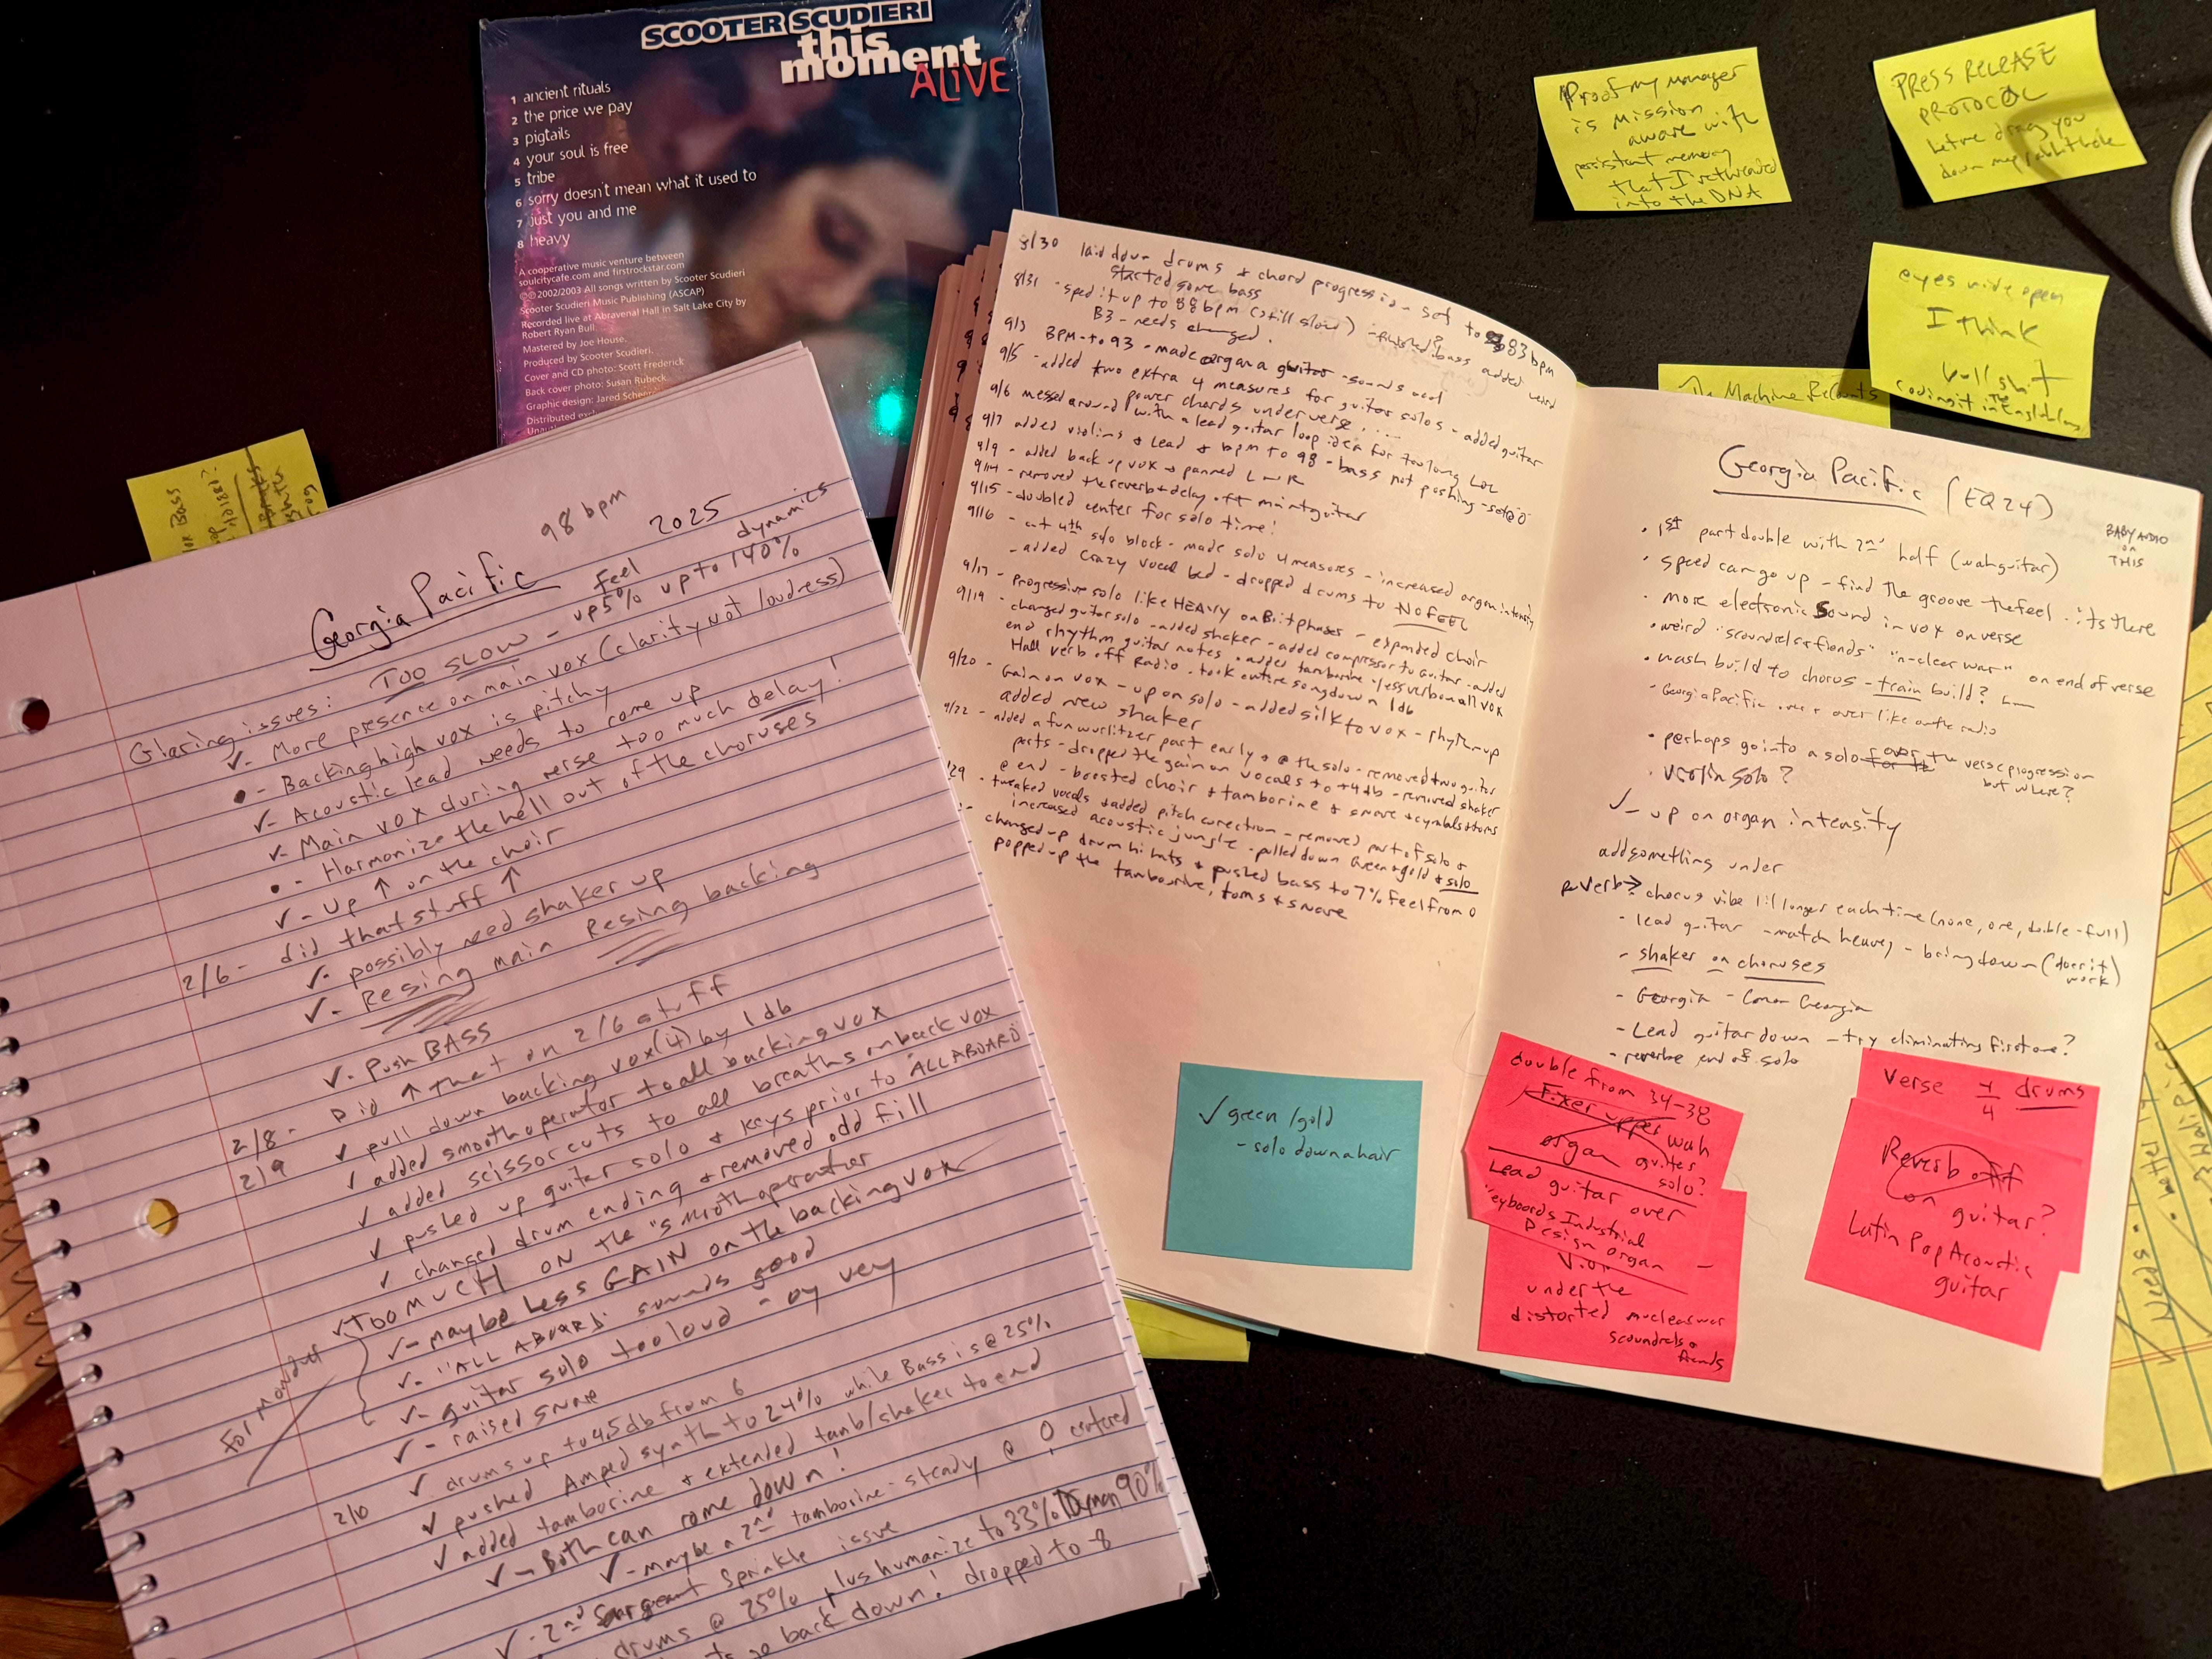 SCOOTER SCUDIERI
this
moment
ALIVE
1 ancient rituals
2 the price we pay
3 pigtails
4 your soul is free
5 tribe
6 sorry doesn't mean what it used to
7 just you and me
8 heavy
A cooperative music venture between
soulcitycafe.com and firstrockstar.com
©℗2002/2003 All songs written by Scooter Scudieri
Scooter Scudieri Music Publishing (ASCAP)
Recorded live at Abravenal Hall in Salt Lake City by
Robert Ryan Bull.
Mastered by Joe House.
Produced by Scooter Scudieri.
Cover and CD photo: Scott Frederick
Back cover photo: Susan Rubeck
Graphic design: Jared
Distributed
Proof my manager
is mission
aware with
persistent memory
that I rethreaded
into the DNA
PRESS RELEASE
PROTOCOL
let me drag you
down my rabbit hole
eyes wide open
I think
bullshit
coding it in
The Machine Recounts
Bass
Georgia Pacific
98 bpm
2025
Glaring issues: TOO SLOW - up 5% up to 140%
feel
dynamics
✓- More presence on main vox (clarity not loudness)
• - Backing high vox is pitchy
✓- Acoustic lead needs to come up
✓- Main vox during verse too much delay!
• - Harmonize the hell out of the choruses
✓- Up ↑ on the choir
2/6 - did that stuff ↑
✓- possibly need shaker up
✓- Resing main Resing backing
✓- Push BASS
2/8 - Did ↑ that on 2/6 stuff
2/9 ✓ pull down backing vox (4) by 1db
✓ added smooth operator to all backing vox
✓ added scissor cuts to all breaths on back vox
✓ pushed up guitar solo & keys prior to ALL ABOARD
✓ changed drum ending & removed odd fill
✓ TOO MUCH ON the "smooth operator
✓- maybe Less GAIN on the backing vox
✓- "ALL ABOARD" sounds good
✓- guitar solo too loud - by very
✓- raised snare
For
2/10 ✓ drums up to 4.5db from 6
✓ pushed Amped synth to 24% while Bass is @ 25%
✓ added tamborine & extended tamb/shaker to end
✓- Both can come down!
✓- maybe a 2nd tamborine - steady @ 0 centered
✓- 2nd Sargeant Sprinkle issue
drums @ 25% plus humanize to 33% Dynam 90%
go back down! dropped to -8
8/30 laid down drums & chord progression - set to 83bpm
started some bass
8/31 - sped it up to 88bpm (still slow) - finished bass added weird
B3 - needs changed.
9/3 BPM - to 93 - made organ a guitar - sounds cool
9/5 - added two extra 4 measures for guitar solos - added guitar
power chords under verse . . . .
9/6 messed around with a lead guitar loop idea for too long LOL
9/7 added violins & Lead & bpm to 98 - bass not pushing - set @ 0
9/9 - added back up vox & panned L & R
9/14 - removed the reverb & delay off main guitar
9/15 - doubled center for solo time!
9/16 - cut 4th solo block - made solo 4 measures - increased organ intensity
- added crazy vocal bed - dropped drums to NO FEEL
9/17 - progressive solo like HEAVY on Brit phases - expanded choir
9/19 - changed guitar solo - added shaker - added compressor to guitar - added
end rhythm guitar notes - added tamborine - less verb on all vox
Hall verb off Radio - took entire song down 1db
9/20 - Gain on vox - up on solo - added silk to vox - rhythm up
added new shaker
9/22 - added a fun wurlitzer part early & @ the solo - removed two guitar
parts - dropped the gain on vocals to +4db - removed shaker
@ end - boosted choir & tamborine & snare & cymbals & toms
/29 - tweaked vocals & added pitch corection - removed part of solo &
increased acoustic jungle - pulled down Green & gold & solo
changed up drum hi hats & pushed bass to 7% feel from 0
popped up the tambourine, toms & snare
✓ green/gold
- solo down a hair
Georgia Pacific (EQ 24)
BABY AUDIO
on
THIS
• 1st part double with 2nd half (wah guitar)
• speed can go up - find the groove the feel .. its there
• more electronic sound in vox on verse
• weird "scoundrels & fiends" "n-clear war" on end of verse
• wash build to chorus - train build?
- Georgia Pacific over & over like on the radio
• perhaps go into a solo over the verse progression
but where?
• violin solo?
✓- up on organ intensity
add something under
chorus vibe lil longer each time (none, one, double - full)
- lead guitar - match heavy - bring down (does it
work)
- shaker on choruses
- Georgia - Comon Georgia
- Lead guitar down - try eliminating first one?
- reverbe end of solo
double from 34-38
Fixer upper wah
organ guitar
solo?
Lead guitar over
keyboards Industrial
Design organ
Violin
under the
distorted nuclear war
scoundrels &
fiends
verse 4/4 drums
Reverb off
on guitar?
Latin Pop Acoustic
guitar
Needs